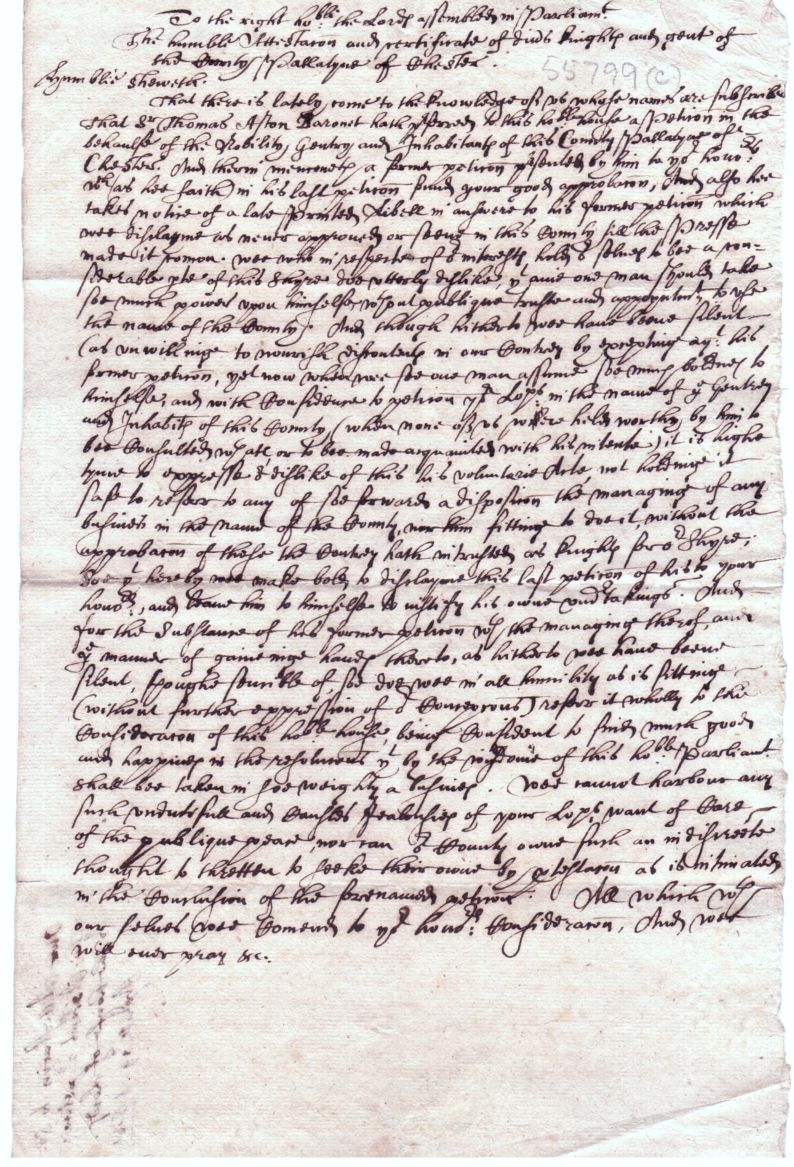 To the right ho:ble the Lords assembled in Parliamt
The humble Attestacon and certificate of divs knights and gent of
the County Pallatyne of Chester.
55799(c)
Humblie Sheweth.
That there is lately come to the knowledge of us whose names are subscribed
that Sr Thomas Aston Baronet hath pferred to this hoble house a peticon in the
behaulfe of the Nobility, Gentry and Inhabitants of this County Pallatyne of
Chester. And therin mencioneth a former peticon psented by him to yr honors
wch (as hee saith) in his last peticon fund your good approbacon, And also hee
takes notice of a late Printed Libell in answere to his former peticon which
wee disclayme as never approued or seene in this County till the Presse
made it comon. wee who in respecte of or interests hold or selues to bee a con-
siderable pte of this Shyre doe utterly dislike, yt anie one man should take
soe much power upon himselfe, wthout publique truste and appoyntmt to use
the name of the County. And though hitherto wee have beene silent
(as unwillinge to nourish discontents in our Contrey by exceptinge agt his
former peticon, yet now when wee see one man assume soe much boldnes to
himselfe, and with Confidence to peticon yr Lops in the name of ye Gentrey
and Inhabits of this County (when none of us were held worthy by him to
bee Consulted wth att, or to bee made acquainted with his intents) it is highe
tyme to expresse or dislike of this his voluntarie Acte not holdinge it
safe to referr to any of soe forward a disposicon the managinge of any
busines in the name of the County, nor him fittinge to doe it, without the
approbacon of these the Contrey hath intrusted as knights for or Shyre;
Soe yt hereby wee make bold to disclayme this last peticon of his to your
honors, and leaue him to himselfe to iustify his owne undtakings. And
for the Substance of his former peticon wth the managing therof, and
ye manner of gaineinge hands thereto, as hitherto wee have beene
silent, though sencible of, soe doe wee in all humility as is fittinge
(without further expression of or Concepcons) referr it wholly to the
Consideracon of this hoble house, being Confident to find much good
and happines in the resolucons yt by the wisdome of this hoble Parliamt
shall bee taken in soe weighty a busines. Wee cannot harbour any
such undutifull and Causles Jealousies of your Lops want of Care
of the publique peace, nor can or County owne such an indiscreete
thought to thretten to seeke their owne by ptestacon as is intimated
in the Conclusion of the forenamed peticon. All which wth
our selues wee Comend to yr honors Consideracon, And wee
will ever pray &c.